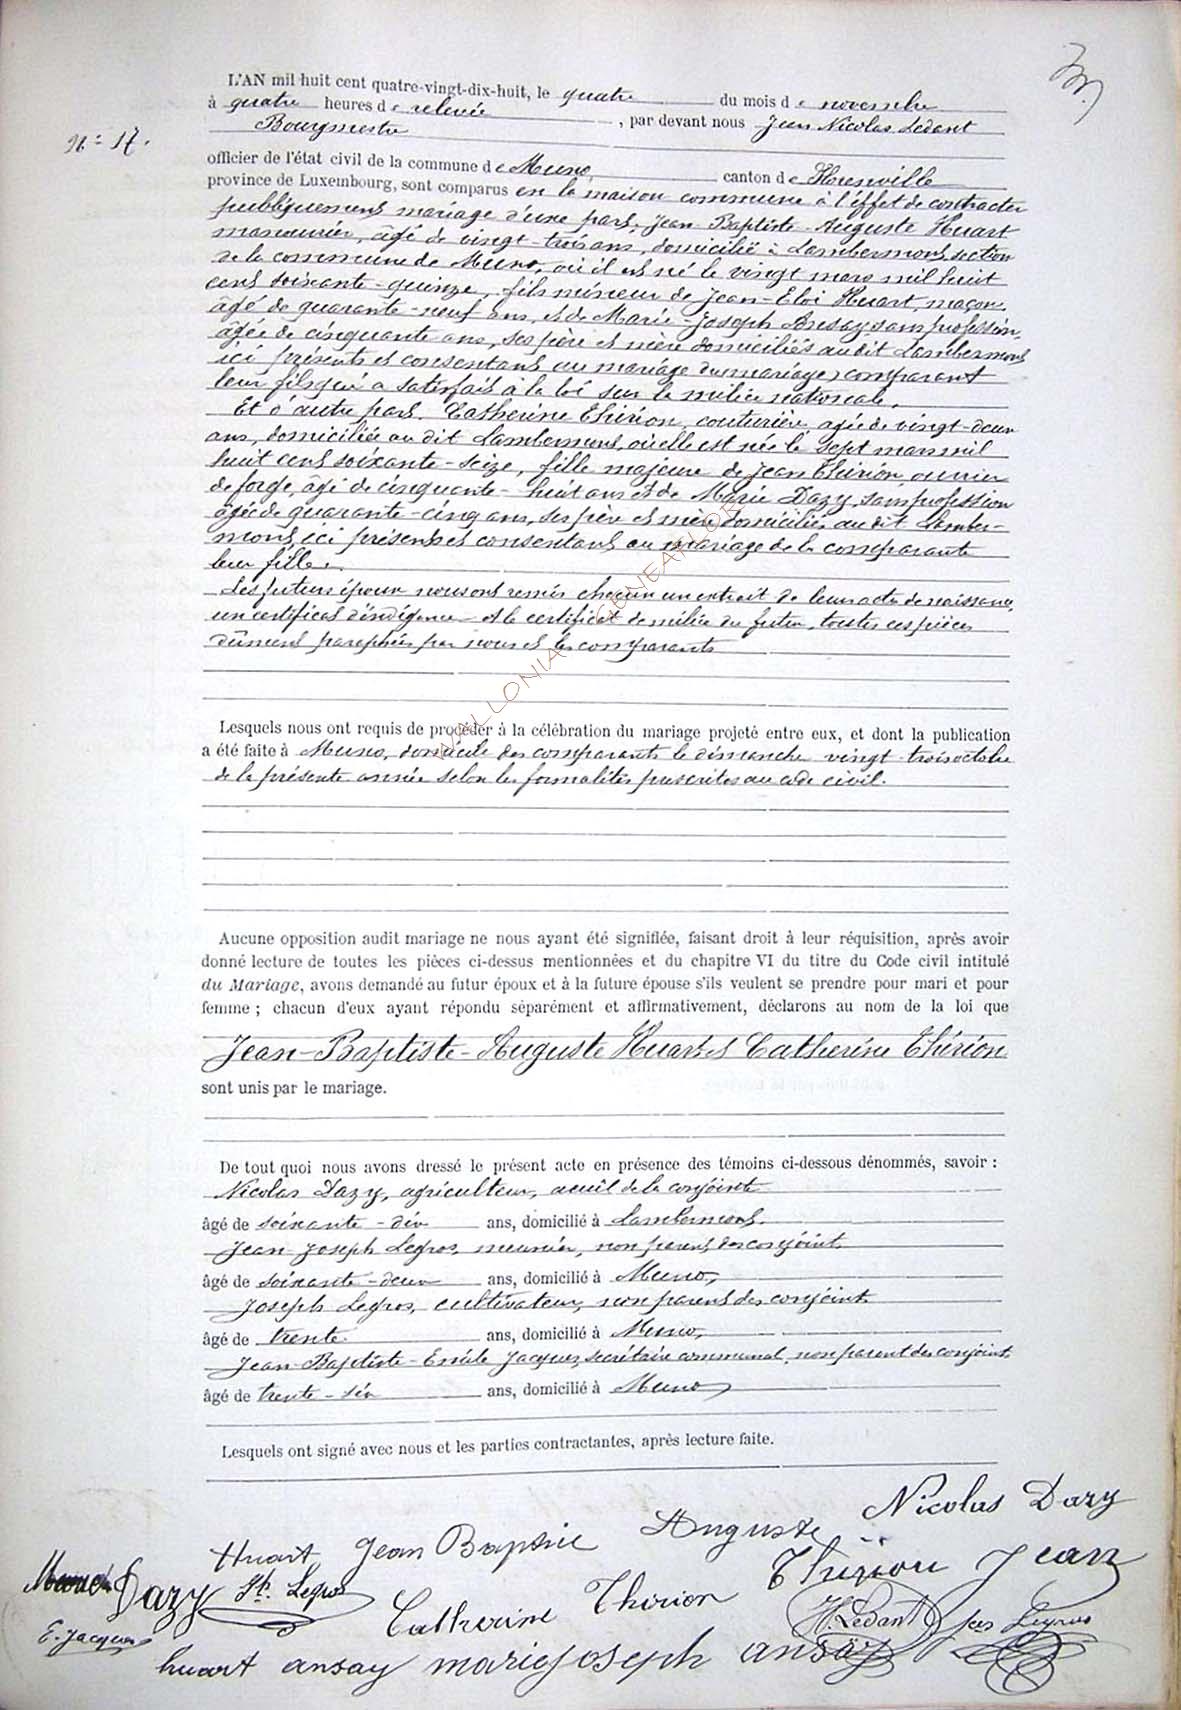 L'AN mil huit cent quatre-vingt-dix-huit, le quatre du mois de novembre
à quatre heures de relevée, par devant nous Jean Nicolas Ledant
Bourgmestre
N° 17.
officier de l'état civil de la commune de Muno, canton de Florenville
province de Luxembourg, sont comparus en la maison commune à l'effet de contracter
publiquement mariage d'une part, Jean-Baptiste-Auguste Huart
manœuvrier, âgé de vingt-trois ans, domicilié à Lambermont section
de la commune de Muno, où il est né le vingt mars mil huit
cent soixante-quinze, fils mineur de Jean-Eloi Huart, maçon,
âgé de quarante-neuf ans, et de Marie-Joseph Ansay, sans profession,
âgée de cinquante ans, ses père et mère domiciliés audit Lambermont
ici présents et consentant au mariage du comparant
leur fils qui a satisfait à la loi sur la milice nationale.
Et d'autre part, Catherine Thirion, couturière, âgée de vingt-deux
ans, domiciliée au dit Lambermont, où elle est née le sept mars mil
huit cent soixante-seize, fille majeure de Jean Thirion, ouvrier
de forge, âgé de cinquante-huit ans et de Marie Dazy, sans profession
âgée de quarante-cinq ans, ses père et mère domiciliés au dit Lamber-
mont, ici présents et consentant au mariage de la comparante
leur fille.
Les futurs époux nous ont remis chacun un extrait de leur acte de naissance,
un certificat d'indigence et le certificat de milice du futur, toutes ces pièces
dûment paraphées par nous et les comparants
Lesquels nous ont requis de procéder à la célébration du mariage projeté entre eux, et dont la publication
a été faite à Muno, domicile des comparants le dimanche vingt-trois octobre
de la présente année selon les formalités prescrites au code civil.
Aucune opposition audit mariage ne nous ayant été signifiée, faisant droit à leur réquisition, après avoir
donné lecture de toutes les pièces ci-dessus mentionnées et du chapitre VI du titre du Code civil intitulé
du Mariage, avons demandé au futur époux et à la future épouse s'ils veulent se prendre pour mari et pour
femme ; chacun d'eux ayant répondu séparément et affirmativement, déclarons au nom de la loi que
Jean-Baptiste-Auguste Huart et Catherine Thirion
sont unis par le mariage.
De tout quoi nous avons dressé le présent acte en présence des témoins ci-dessous dénommés, savoir :
Nicolas Dazy, agriculteur, aïeul de la conjointe
âgé de soixante-dix ans, domicilié à Lambermont.
Jean-Joseph Legros, meunier, non parent des conjoints
âgé de soixante-deux ans, domicilié à Muno,
Joseph Legros, cultivateur, non parent des conjoints
âgé de trente ans, domicilié à Muno,
Jean-Baptiste-Emile Jacques, secrétaire communal, non parent des conjoints.
âgé de trente-six ans, domicilié à Muno
Lesquels ont signé avec nous et les parties contractantes, après lecture faite.
Nicolas Dazy
Huart Jean Baptiste Auguste
Dazy Jh. Legros Catherine Thirion Thirion Jean
E. Jacques N. Ledant Jos Legros
huart ansay marie joseph ansay
WALLONIA GENEAFLORE